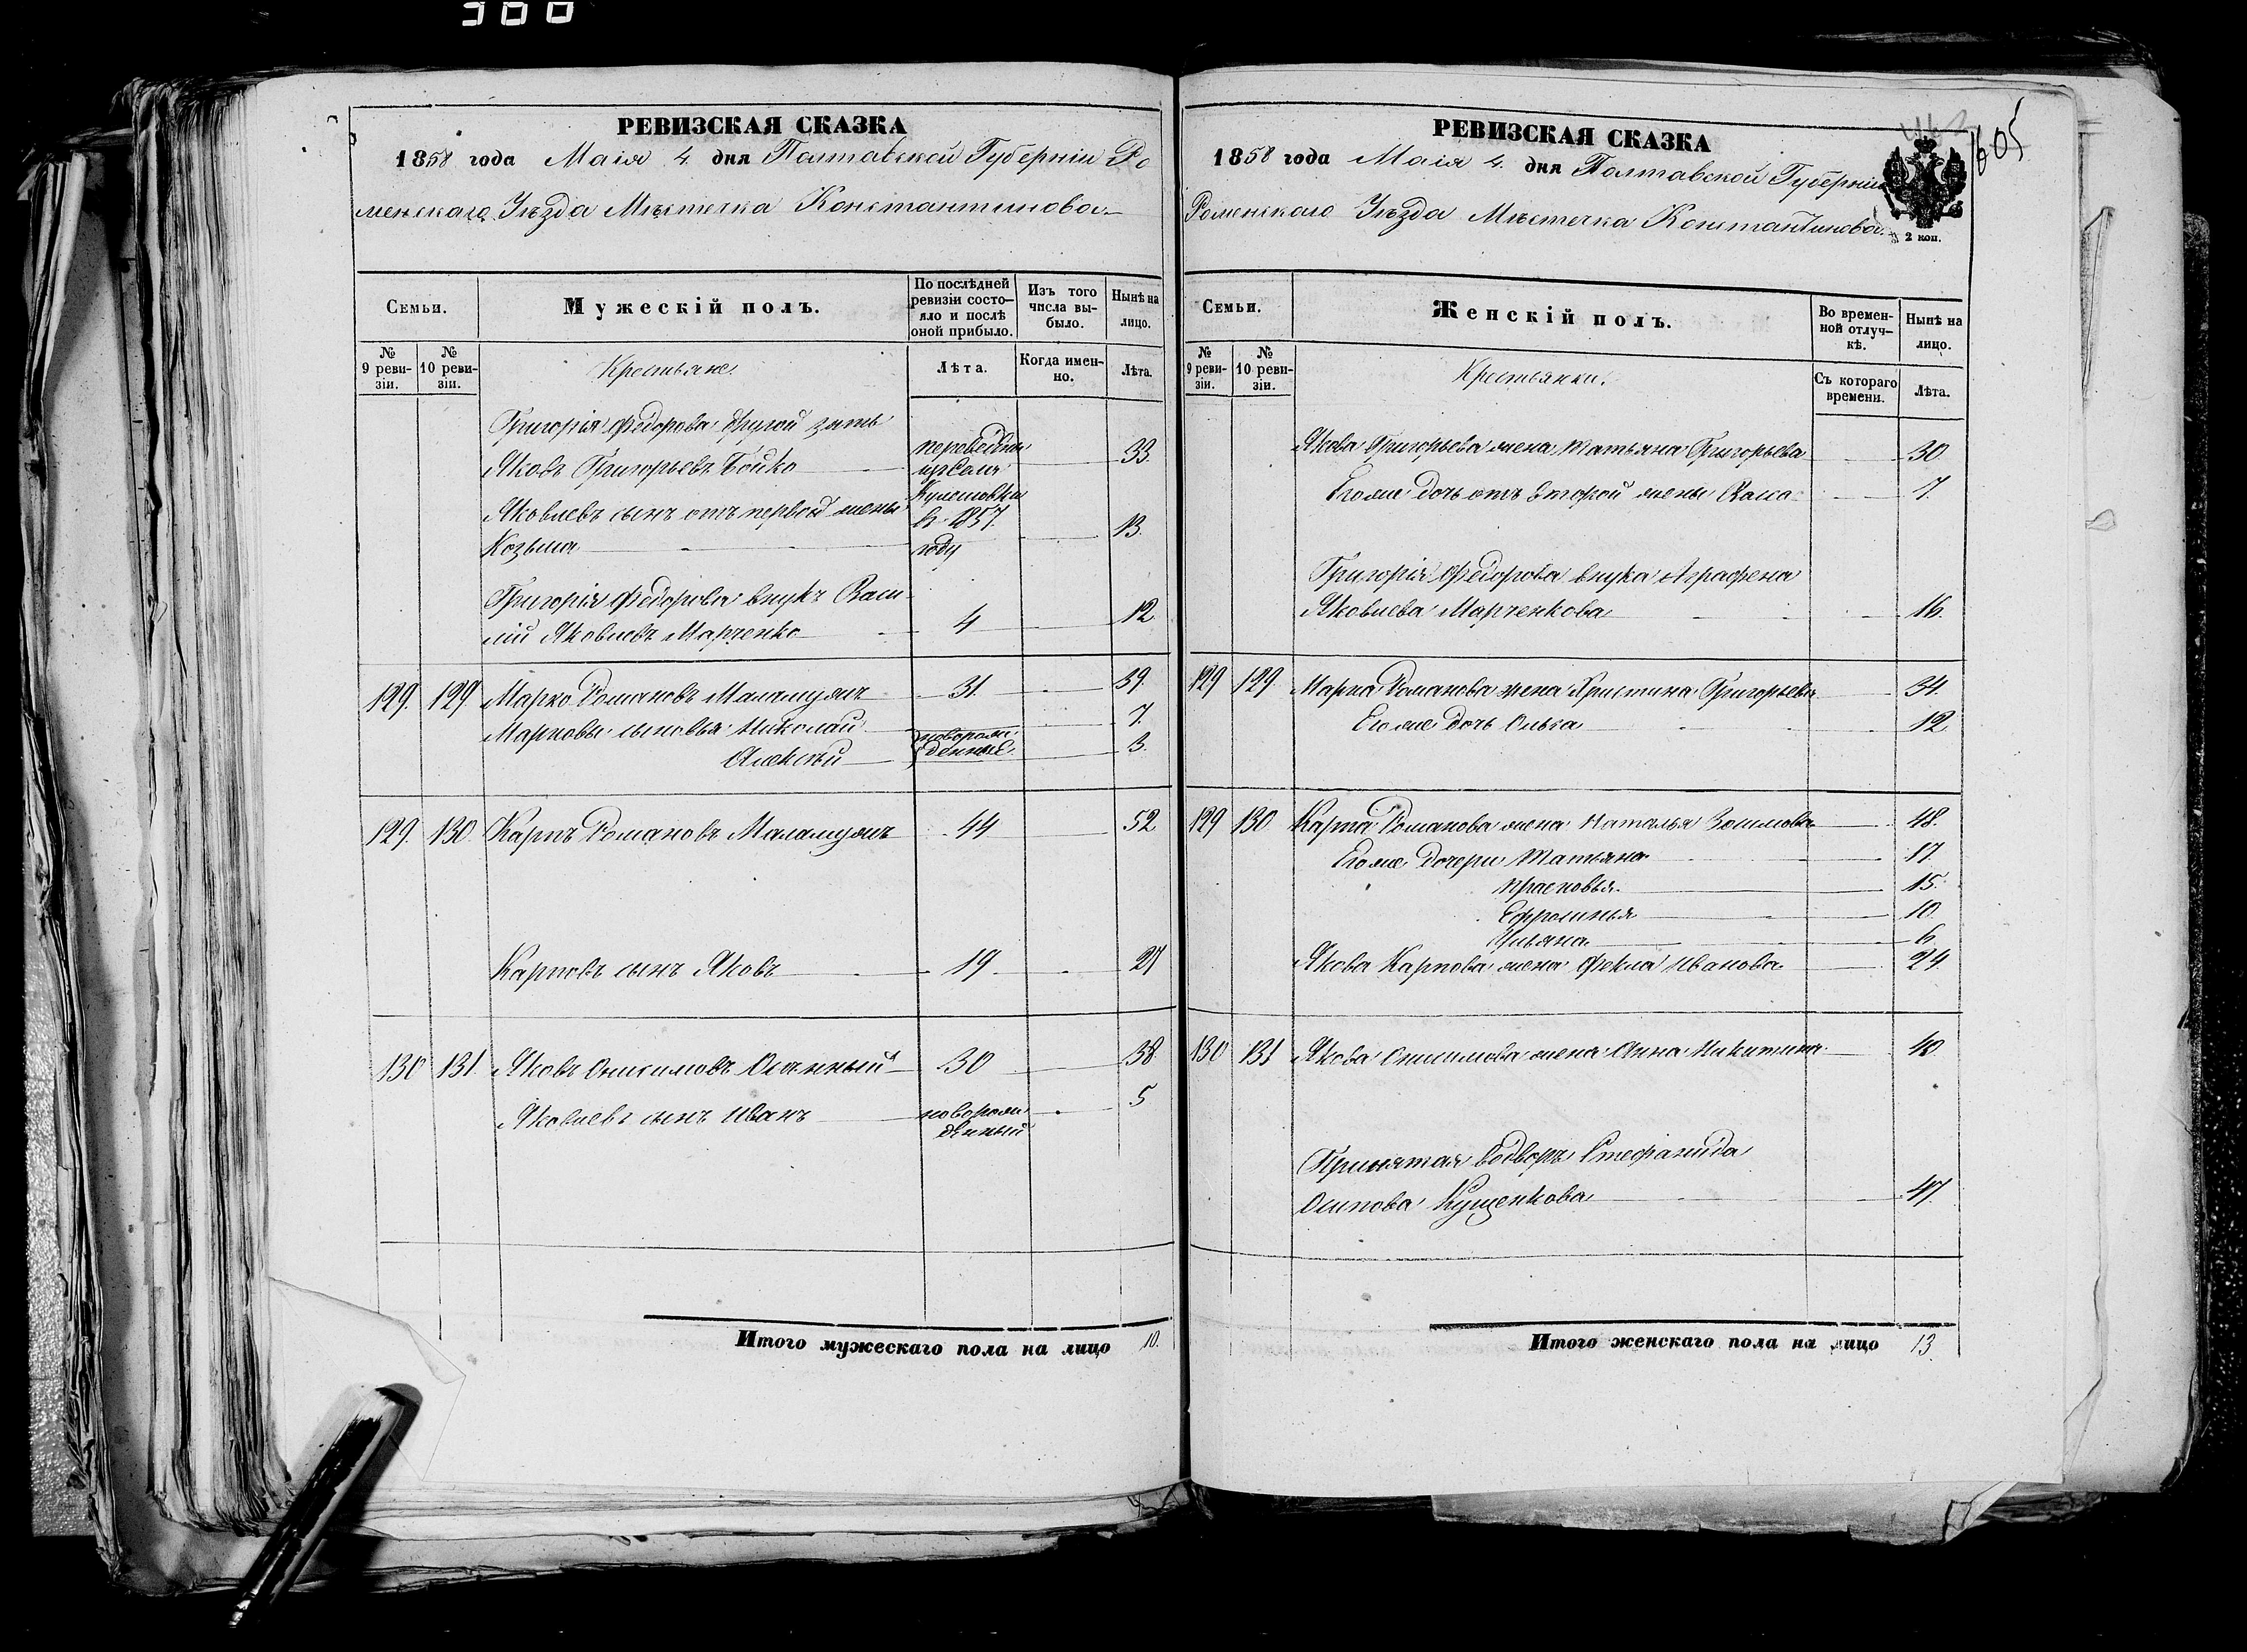 300
РЕВИЗСКАЯ СКАЗКА
1858 года Маія 4 дня Полтавской Губерніи Ро
менскаго Уѣзда Мѣстечка Константинова
Семьи.
Мужескій полъ.
По послѣдней
ревизіи состо-
яло и послѣ
оной прибыло.
Изъ того
числа вы-
было.
Нынѣ на
лицо.
№
9 реви-
зіи.
№
10 реви-
зіи.
Крестьяне.
Лѣта.
Когда имен-
но.
Лѣта.
Григорія Федорова другой зять
Яковъ Григорьевъ Бойко 33.
переведены
изъ села
Кулешовки
в 1857.
году
Яковлевъ сынъ отъ первой жены
Козьма 13.
Григорія Федорова внукъ Васи-
лій Яковлевъ Марченко 4 12
129. 129 Марко Романовъ Маламужъ 31. 39.
Марковы сыновья Николай 7.
Алексѣй 3.
новорож-
денные.
129. 130. Карпъ Романовъ Маламужъ 44 52
Карповъ сынъ Яковъ 19 27
130 131 Яковъ Онисимовъ 30 38
Яковлевъ сынъ Иванъ новорож-
денный 5
Итого мужескаго пола на лицо 10.
605
РЕВИЗСКАЯ СКАЗКА
1858 года Маія 4. дня Полтавской Губерніи
Роменскаго Уѣзда Мѣстечка Константинова
2 коп.
Семьи.
Женскій полъ.
Во времен-
ной отлуч-
кѣ.
Нынѣ на
лицо.
№
9 реви-
зіи.
№
10 реви-
зіи.
Крестьянки.
Съ котораго
времени.
Лѣта.
Якова Григорьева жена Татьяна Григорьева 30
Его же дочь отъ второй жены Васса 7.
Григорія Федорова внука Аграфена
Яковлева Марченкова 16.
129 129 Марка Романова жена Христина Григорьева 34.
Его же дочь Ольга 12
129 130 Карпа Романова жена Наталья Зосимова 48.
Его же дочери Татьяна 17.
Прасковья 15.
Ефросинья 10.
Ульяна 6
Якова Карпова жена Фекла Иванова 24.
130 131 Якова Онисимова жена Анна Никитина 40
Принятая водворъ Стефанида
Осипова Кущенкова 47.
Итого женскаго пола на лицо 13.